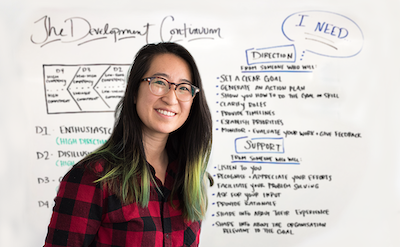 The Development Continuum
I NEED
DIRECTION
FROM SOMEONE WHO WILL:
- SET A CLEAR GOAL
- GENERATE AN ACTION PLAN
- SHOW YOU HOW TO DO THE GOAL OR SKILL
- CLARIFY ROLES
- PROVIDE TIMELINES
- ESTABLISH PRIORITIES
- MONITOR + EVALUATE YOUR WORK + GIVE FEEDBACK
SUPPORT
FROM SOMEONE WHO WILL:
- LISTEN TO YOU
RECOGNIZE + APPRECIATE YOUR EFFORTS
FACILITATE YOUR PROBLEM SOLVING
ASK FOR YOUR INPUT
PROVIDE RATIONALE
SHARE INFO ABOUT THEIR EXPERIENCE
SHARE INFO ABOUT THE ORGANIZATION
RELEVANT TO THE GOAL
D4
D3
D2
HIGH COMPETENCE
HIGH COMMITMENT
D1. ENTHUSIASTIC
(HIGH
D2. DISILLUSI
D3
D4